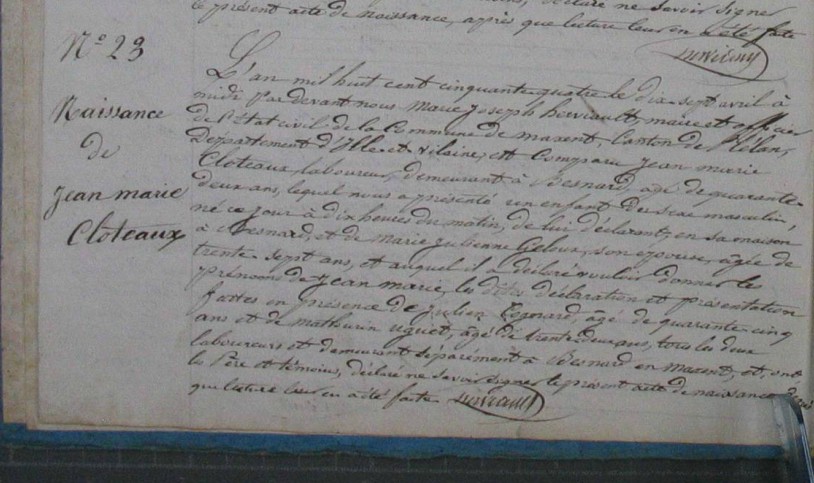 le présent acte de naissance, après que lecture leur en a été faite
N° 23
Naissance
de
Jean marie
Cloteaux
L'an mil huit cent cinquante quatre le dix sept avril à
midi par devant nous Marie Joseph hervault, maire et officier
de l'état civil de la Commune de maxent, Canton de Plélan,
Département d'Ille et Vilaine, est Comparu Jean marie
Cloteaux laboureur, demeurant à Besnard, âgé de quarante
deux ans, lequel nous a présenté un enfant du sexe masculin,
né ce jour à dix heures du matin, de lui déclarant, en sa maison
à Besnard, et de Marie Julienne Geloux, son épouse, agée de
trente sept ans, et auquel il a déclaré vouloir donner les
prénoms de Jean marie, les dites déclaration et présentation
faites en présence de Julien agé de quarante cinq
ans et de mathurin uguet, agé de trente deux ans, tous les deux
laboureurs et demeurant séparément à Besnard en maxent, et, ont
les Père et témoins, déclaré ne savoir signer le présent acte de naissance après
que lecture leur en a été faite